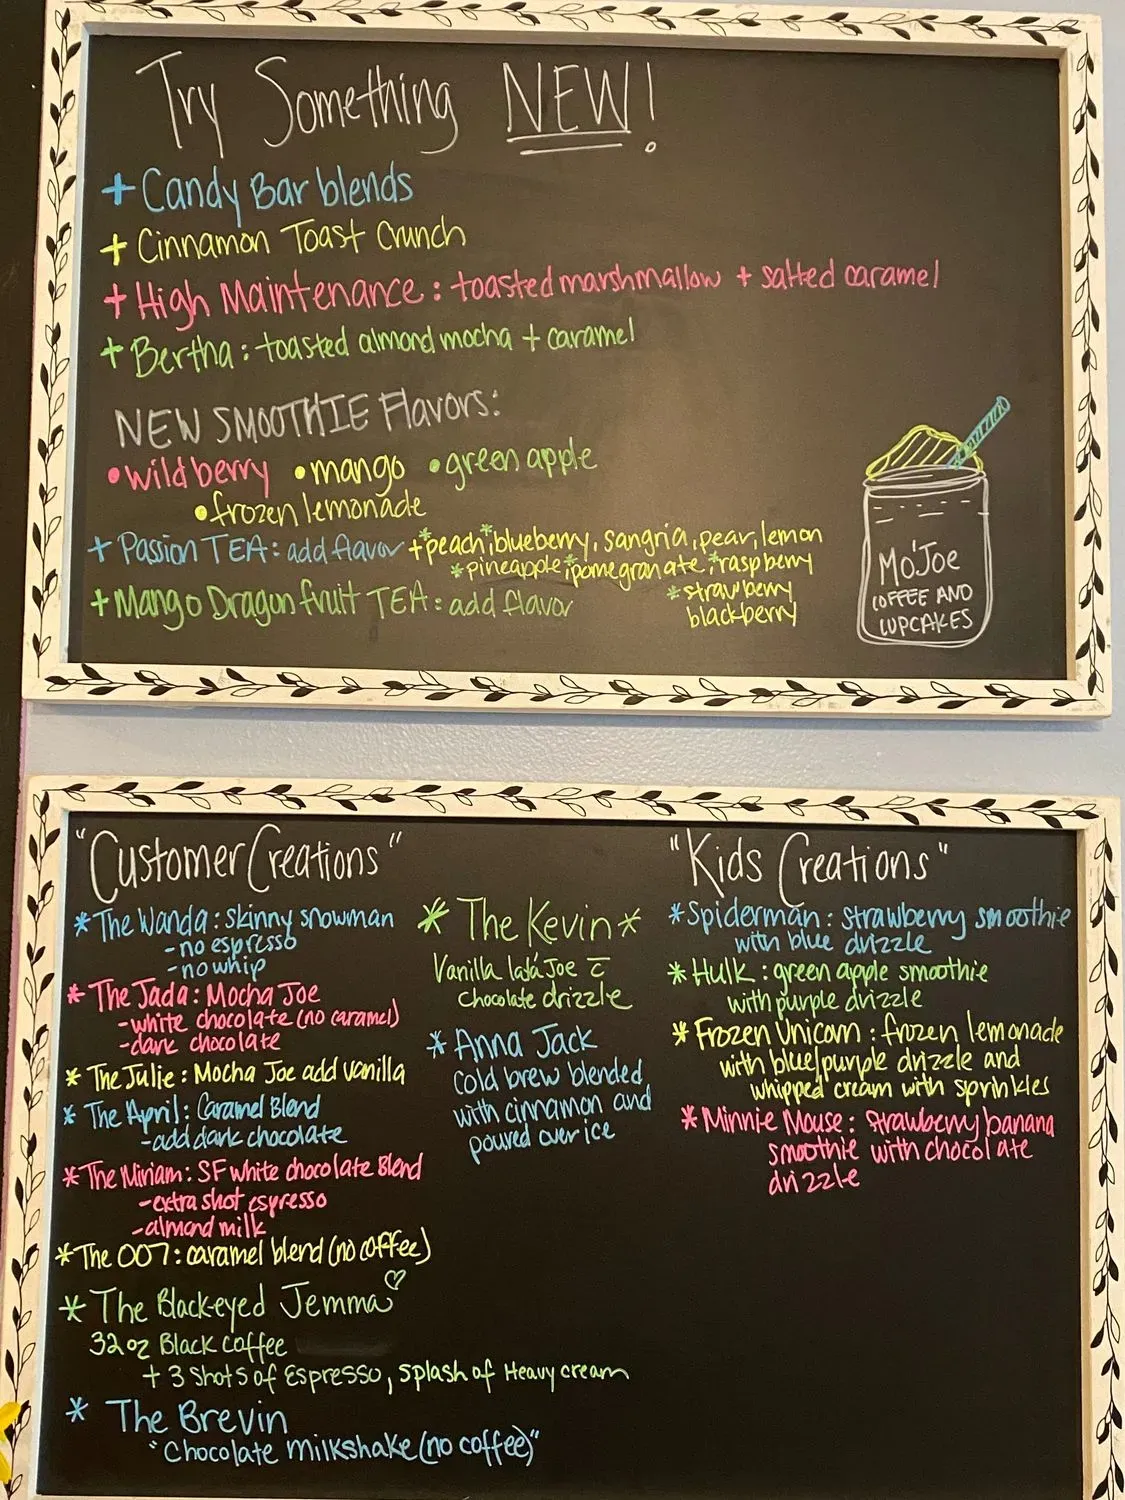 Try Something NEW!
+ Candy Bar blends
+ Cinnamon Toast Crunch
+ High Maintenance: toasted marshmallow + salted caramel
+ Bertha: toasted almond mocha + caramel
NEW SMOOTHIE Flavors:
• wild berry • mango • green apple
• frozen lemonade
+ Passion TEA: add flavor + *peach, *blueberry, sangria, pear, lemon
*pineapple, *pomegranate, *raspberry
*strawberry
+ Mango Dragonfruit TEA: add flavor
blackberry
Mo'Joe
COFFEE AND
CUPCAKES
"Customer Creations"
* The Wanda: skinny snowman
- no espresso
- no whip
* The Jada: Mocha Joe
- white chocolate (no caramel)
- dark chocolate
* The Julie: Mocha Joe add vanilla
* The April: Caramel Blend
- add dark chocolate
* The Miriam: SF white chocolate Blend
- extra shot espresso
- almond milk
* The 007: caramel blend (no coffee)
* The Black-eyed Jemma ♡
32oz Black coffee
+ 3 shots of Espresso, splash of Heavy cream
* The Brevin
"Chocolate milkshake (no coffee)"
* The Kevin *
Vanilla latá Joe c̄
chocolate drizzle
* Anna Jack
Cold brew blended
with cinnamon and
poured over ice
"Kids Creations"
* Spiderman: strawberry smoothie
with blue drizzle
* Hulk: green apple smoothie
with purple drizzle
* Frozen Unicorn: frozen lemonade
with blue/purple drizzle and
whipped cream with sprinkles
* Minnie Mouse: strawberry banana
smoothie with chocolate
drizzle